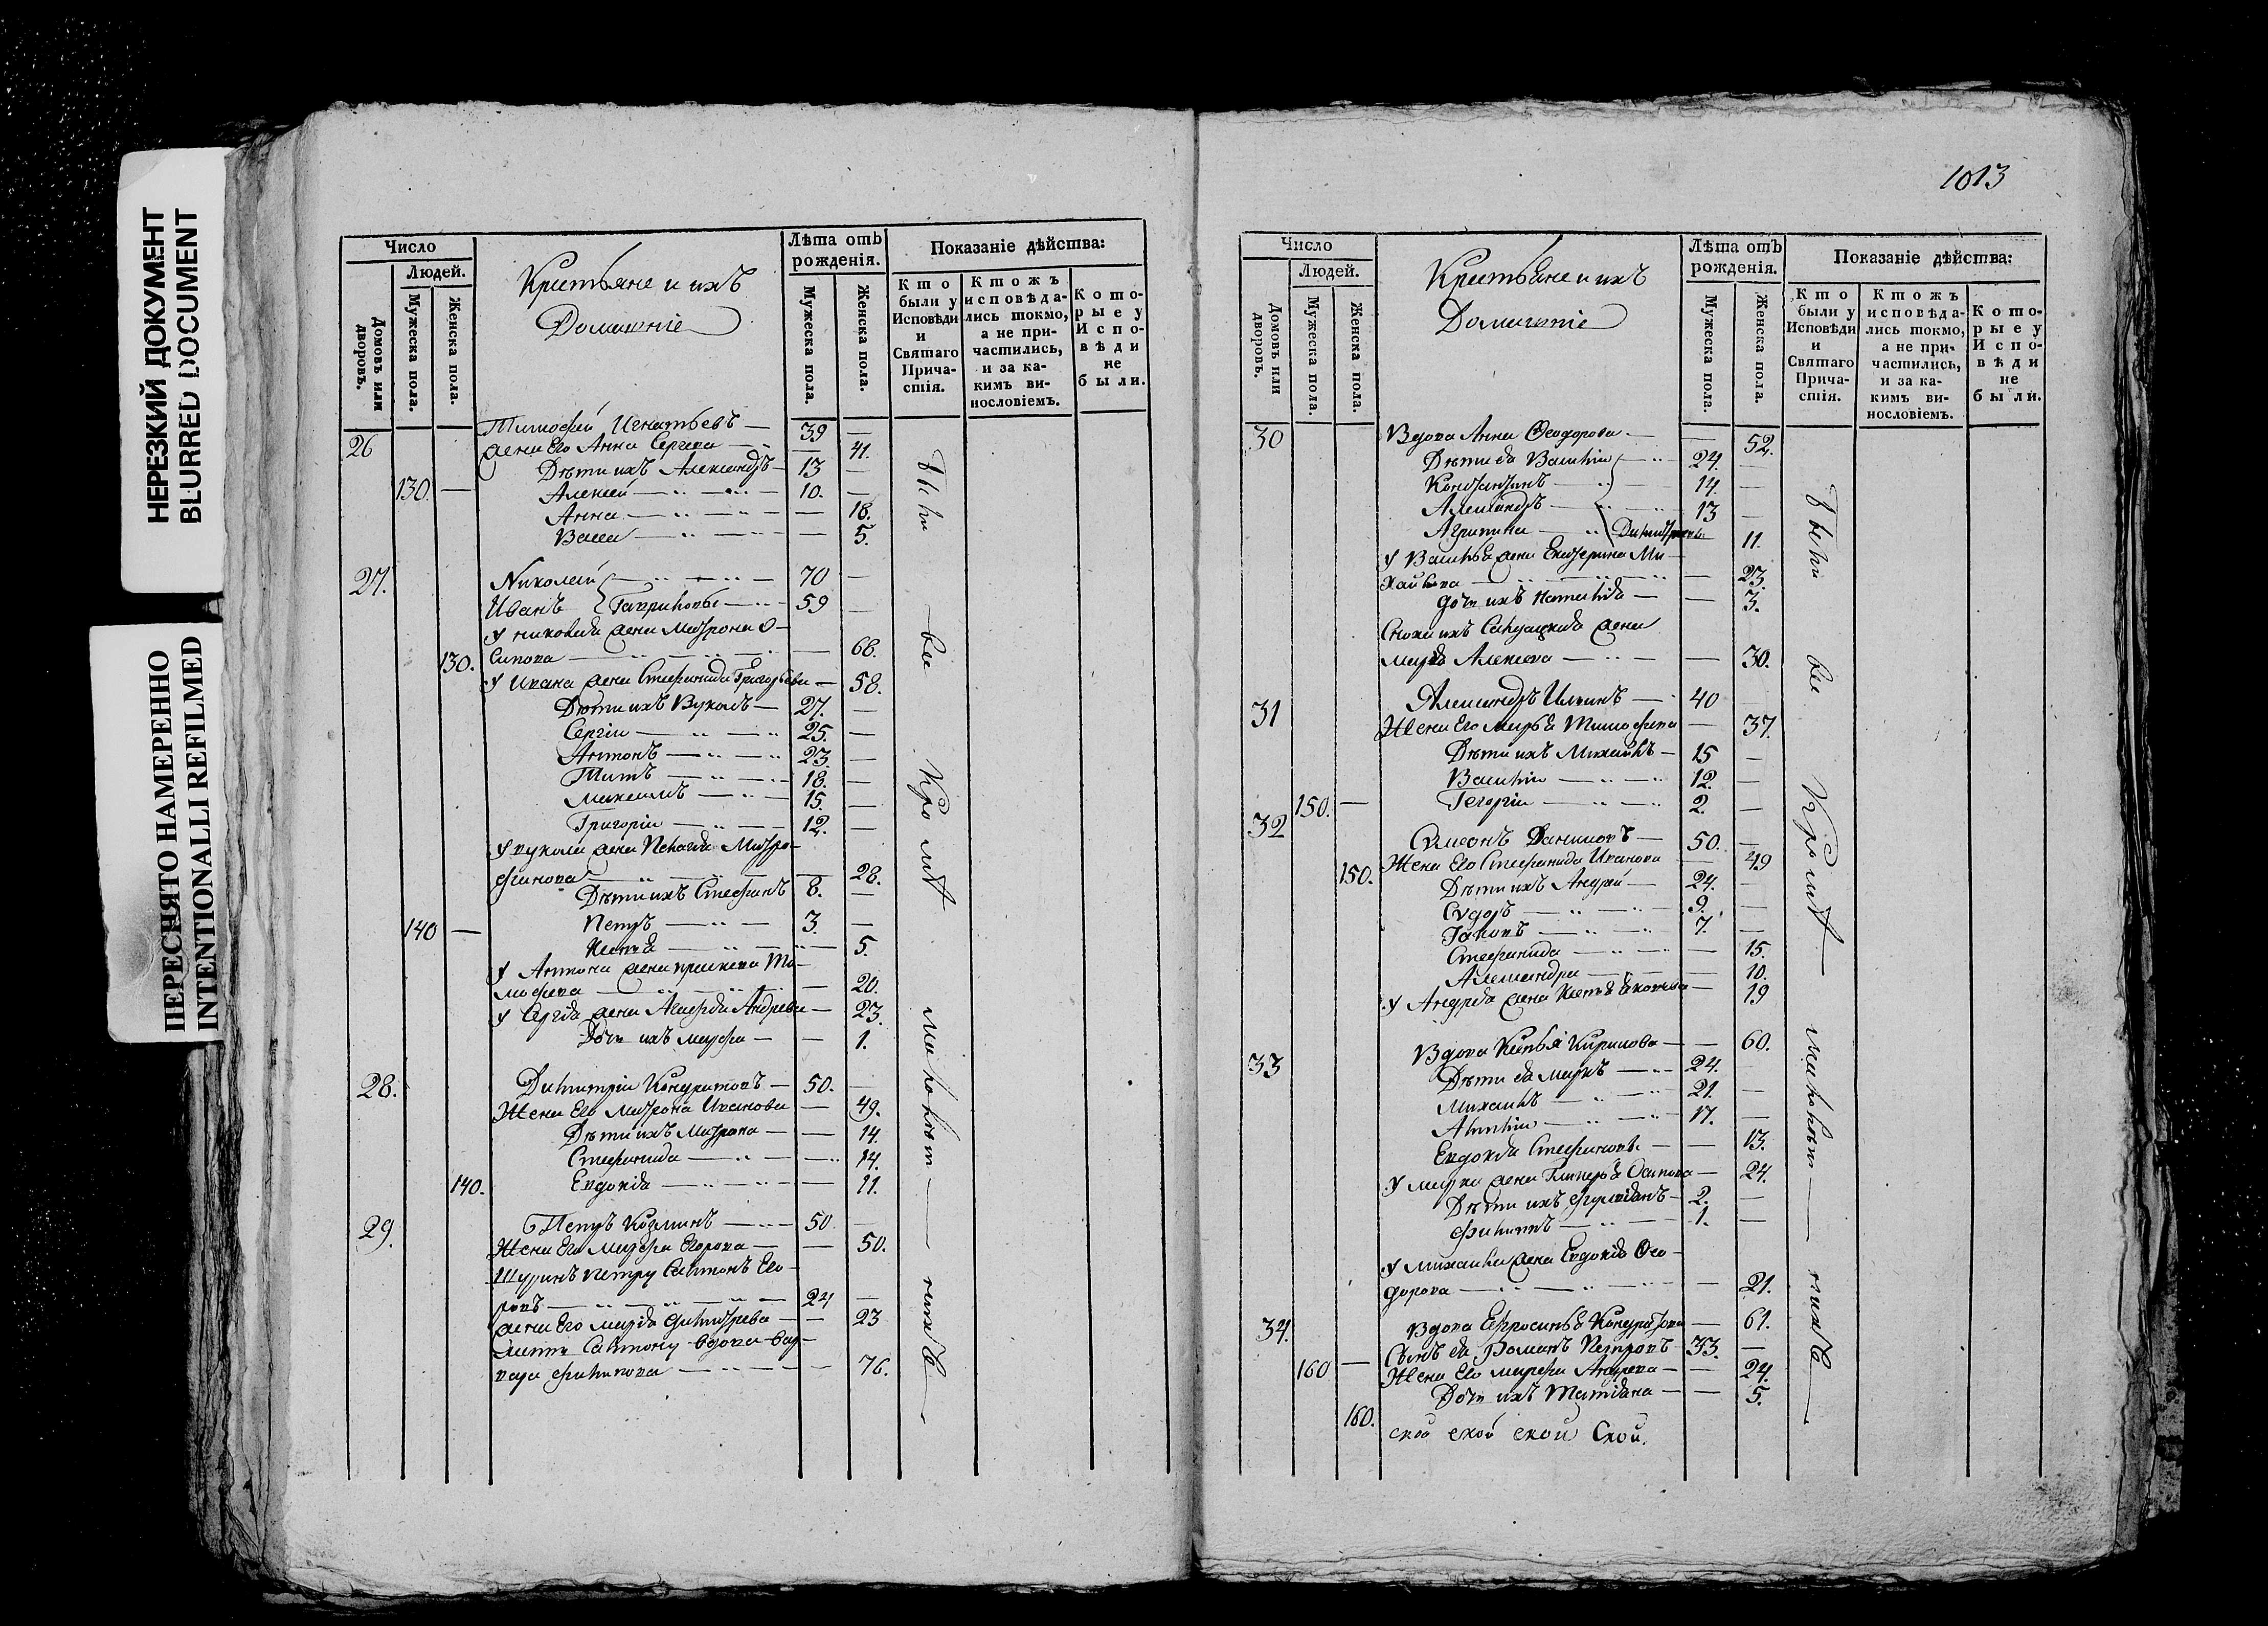 НЕРЕЗКИЙ ДОКУМЕНТ
BLURRED DOCUMENT
ПЕРЕСНЯТО НАМЕРЕННО
INTENTIONALLI REFILMED
Число
Людей.
Домовъ или дворовъ.
Мужеска пола.
Женска пола.
Крестьяне и ихъ
Домашніе
Лѣта отъ
рожденія.
Мужеска пола.
Женска пола.
Показаніе дѣйства:
Кто
были у
Исповѣди
и
Святаго
Прича-
стія.
Ктожъ
исповѣда-
лись токмо,
а не при-
частились,
и за ка-
кимъ ви-
нословіемъ.
Кото-
рые у
Испо-
вѣди
не
были.
Тимофей Игнатьевъ — 39 —
26 жена Его Анна Сергева — 41.
Дѣти ихъ Александръ — 13 —
130. — Алексей — 10. —
Анна — 18.
Васса — 5.
27. Николай — 70 —
Иванъ Гавриловы — 59 —
У николая жена Матрона О-
130. сипова — 68.
У Ивана жена Стефанида Григорьева — 58.
Дѣти ихъ Вуколъ — 27. —
Сергіи — 25. —
Антонъ — 23. —
Титъ — 18. —
Максимъ — 15. —
Григоріи — 12. —
У вукола жена Пелагія Митро-
фанова — 28.
Дѣти ихъ Стефанъ 8. —
140 — Петръ — 3. —
Ксенія — 5.
У Антона жена Ти-
мофеева — 20.
У Сергія жена Агафія Андреева — 23.
Дочь ихъ марфа — 1.
28. Димитріи Кондратовъ — 50. —
Жена Его Матрона Иванова — 49.
Дѣти ихъ Матрона — 14.
Стефанида — 14.
140. Евдокія — 11.
29. Петръ Козминъ — 50 —
Жена Его Марфа Егорова — 50.
Шуринъ петру Самсонъ Его-
ровъ — 24 —
жена Его марья Димитрева — 23
вдова Вар-
вара филипова — 76.
Были все кромѣ малолѣтнихъ
1013
Число
Людей.
Домовъ или дворовъ.
Мужеска пола.
Женска пола.
Крестьяне и ихъ
Домашніе
Лѣта отъ
рожденія.
Мужеска пола.
Женска пола.
Показаніе дѣйства:
Кто
были у
Исповѣди
и
Святаго
Прича-
стія.
Ктожъ
исповѣда-
лись токмо,
а не при-
частились,
и за ка-
кимъ ви-
нословіемъ.
Кото-
рые у
Испо-
вѣди
не
были.
30 Вдова Анна Ѳеодорова — 52.
Дѣти ея Василіи — 24. —
Константинъ — 14. —
Александръ — 13 —
Агрипина — Димитровы 11.
У Василья жена Екатерина Ми-
хайлова — 23.
дочь ихъ Наталія — 3.
Сноха ихъ жена
марья Алексеева — 30.
31 Александръ Ильинъ — 40
Жена Его марья Тимофеева — 37.
Дѣти ихъ Михайлъ — 15 —
Василіи — 12. —
150. — Георгіи — 2. —
32 Симеонъ Даниловъ — 50. —
150. Жена Его Стефанида Иванова — 49
Дѣти ихъ Андрей — 24. —
Сидоръ — 9. —
Іаковъ — 7. —
Стефанида — 15.
Александра — 10.
У Андрея жена Ксенія Яковлева — 19
33 Вдова Ксенья Кирилова — 60.
Дѣти ея маркъ — 24. —
Михаилъ — 21. —
17. —
Евдокія Стефановы — 13.
У марка жена Гликерья Осипова — 24.
Дѣти ихъ — 2. —
Филиппъ — 1. —
У михаила жена Евдокія Ѳео-
дорова — 21.
34. вдова Ефросинья Кондратова — 61.
160 — Сынъ ея Романъ Петровъ — 33. —
Жена Его марфа Андреева — 24.
Дочь ихъ Татіана — 5.
160.
ской ской ской Ской.
Были все кромѣ малолѣтнихъ